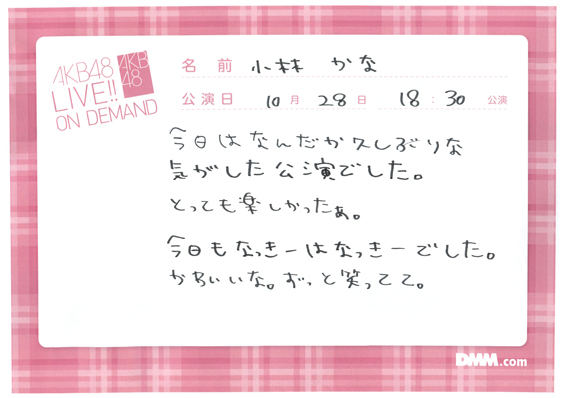 AKB48
LIVE!!
ON DEMAND
AKB
48
名 前 小林 かな
公演日 10月 28日 18:30 公演
今日はなんだか久しぶりな
気がした公演でした。
とっても楽しかったぁ。
今日もなっきーはなっきーでした。
かわいいな。ずっと笑ってて。
DMM.com